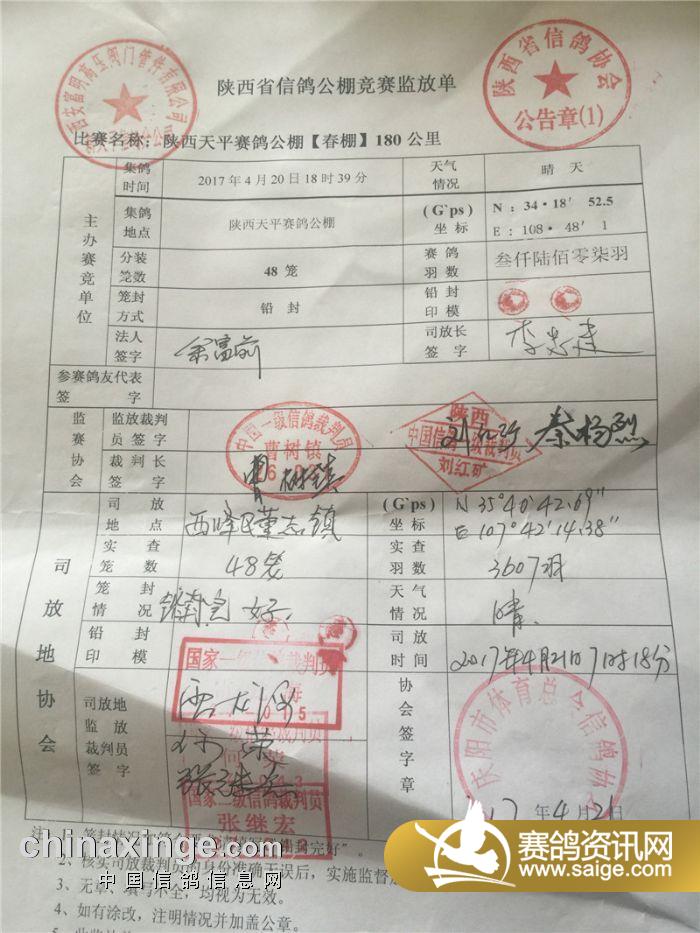 陕西省信鸽公棚竞赛监放单
陕西省信鸽协会
公告章(1)
西安富明高压阀门管件有限公司
比赛名称：陕西天平赛鸽公棚【春棚】180公里
主办赛竞单位
集鸽时间 2017年4月20日18时39分 天气情况 晴天
集鸽地点 陕西天平赛鸽公棚 (G`ps)坐标 N：34·18′ 52.5
E：108·48′ 1
分装笼数 48笼 赛鸽羽数 叁仟陆佰零柒羽
笼封方式 铅封 铅封印模
法人签字 余富前 司放长签字
参赛鸽友代表签字
监赛协会
监放裁判员签字 秦杨烈
裁判长签字
中国一级信鸽裁判员
曹树镇
陕西
中国信鸽一级裁判员
刘红矿
司放地协会
司放地点 西峰区董志镇 (G`ps)坐标 N 35°40′42.69″
E 107°42′14.38″
实查笼数 48笼 实查羽数 3607羽
笼封情况 铅封完好 天气情况 晴
铅封印模 司放时间 2017年4月21日7时18分
国家一级信鸽裁判员
司放地监放裁判员签字 协会签字章
国家二级信鸽裁判员
张继宏
庆阳市体育总会信鸽协会
17年4月21日
2、核实司放裁判员的身份准确无误后，实施监督
3、无章、填写不全，均视为无效。
4、如有涂改，注明情况并加盖公章。
chinaxinge.com
中国信鸽信息网
赛鸽资讯网
www.saige.com